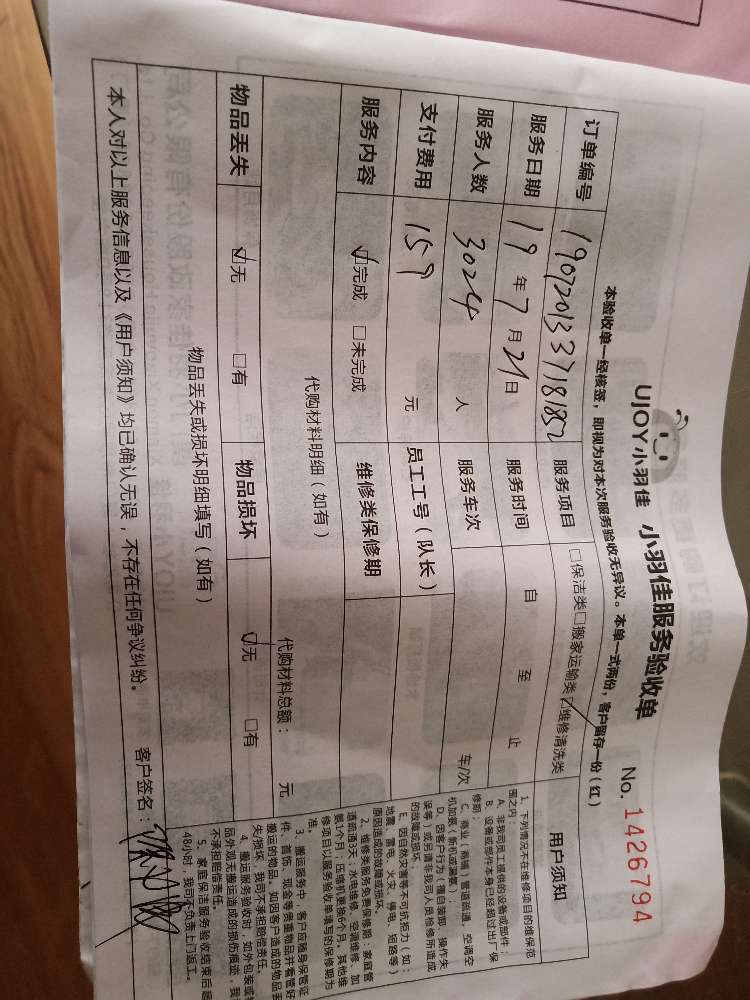 UJOY小羽佳 小羽佳服务验收单 No. 1426794
本验收单一经核签，即视为对本次服务验收无异议。本单一式两份，客户留存一份（红）
订单编号 服务项目 □保洁类□搬家运输类☑维修清洗类
服务日期 19年7月21日 服务时间 自 至 止
服务人数 3024 人 服务车次 车/次
支付费用 159 元 员工工号（队长）
服务内容 ☑完成 □未完成 维修类保修期
代购材料明细（如有） 代购材料总额： 元
物品丢失 ☑无 □有 物品损坏 ☑无 □有
物品丢失或损坏明细填写（如有）
本人对以上服务信息以及《用户须知》均已确认无误，不存在任何争议纠纷。 客户签名：
用户须知
1、下列情况不在维修项目的维保范
围之内：
A、非我司员工提供的设备或部件；
B、设备或部件本身已经超过出厂保
修期；
C、商业（商铺）管道疏通、空调空
机加氨（新机或漏氟）；
D、因客户行为（擅自装卸、操作失
误等）或另请非我司人员检修所造成
的故障或损坏；
E、因自然灾害等不可抗拒力（如：
地震、雷电、火灾、停电、短路等）
原因造成的故障或损坏
2、维修类服务免费保修期：家庭管
道疏通3天；水电维修、空调维修、加
氨1个月；压缩机更换6个月，其他维
修项目以服务验收单填写的保修期为
准。
3、搬运服务中，客户应随身保管证
件、首饰、现金等贵重物品并看管好
搬运的物品。如因客户造成的物品丢
失/损坏，我司不承担赔偿责任。
4、搬运服务验收时，如外包装或
品外观无搬运造成的损伤痕迹，我
不承担赔偿责任。
5、家庭保洁服务验收结束后超
48小时，我司不负责上门返工。